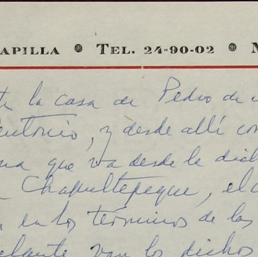 APILLA • TEL. 24-90-02 • M
la casa de Pedro de
Antonio, y desde allí con
que va desde le dich
Chapultepeque, el
en los términos de las
adelante van los dichos